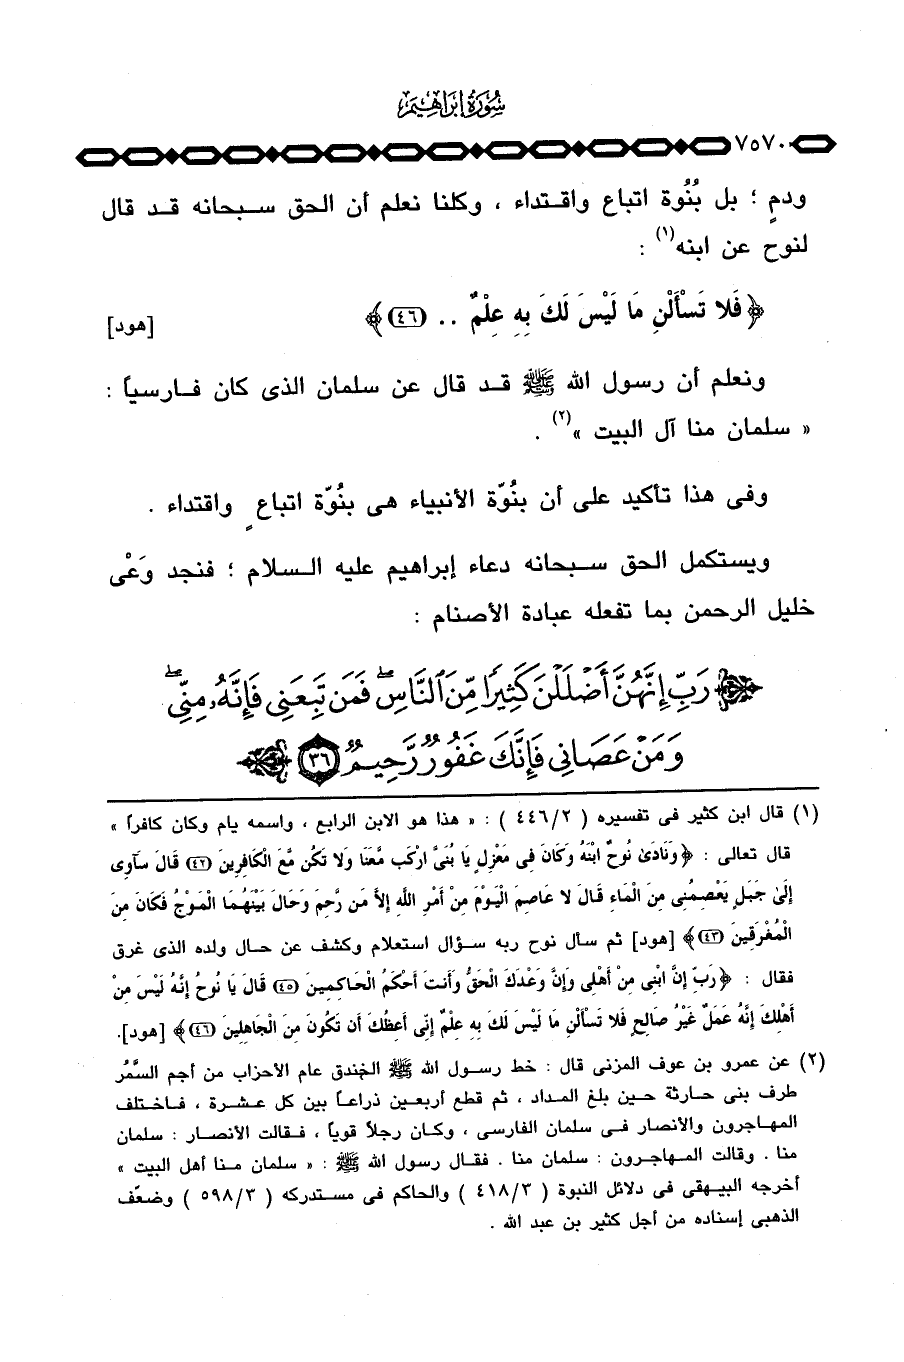 سُورَةُ إِبْرَاهِيمَ
٧٥٧٠
ودمٍ ؛ بل بُنُوة اتباع واقتداء ، وكلنا نعلم أن الحق سبحانه قد قال
لنوح عن ابنه(١) :
﴿ فَلا تَسْأَلْنِ مَا لَيْسَ لَكَ بِهِ عِلْمٌ .. (٤٦) ﴾ [هود]
ونعلم أن رسول الله ﷺ قد قال عن سلمان الذى كان فارسياً :
« سلمان منا آل البيت »(٢) .
وفى هذا تأكيد على أن بنُوّة الأنبياء هى بنُوّة اتباعٍ واقتداء .
ويستكمل الحق سبحانه دعاء إبراهيم عليه السلام ؛ فنجد وَعْى
خليل الرحمن بما تفعله عبادة الأصنام :
﴿ رَبِّ إِنَّهُنَّ أَضْلَلْنَ كَثِيرًا مِّنَ ٱلنَّاسِ ۖ فَمَن تَبِعَنِى فَإِنَّهُۥ مِنِّى ۖ
وَمَنْ عَصَانِى فَإِنَّكَ غَفُورٌ رَّحِيمٌ ٣٦ ﴾
(١) قال ابن كثير فى تفسيره ( ٤٤٦/٢ ) : « هذا هو الابن الرابع ، واسمه يام وكان كافراً »
قال تعالى : ﴿ وَنَادَىٰ نُوحٌ ابْنَهُ وَكَانَ فِى مَعْزِلٍ يَا بُنَىَّ ارْكَب مَّعَنَا وَلا تَكُن مَّعَ الْكَافِرِينَ (٤٢) قَالَ سَآوِى
إِلَىٰ جَبَلٍ يَعْصِمُنِى مِنَ الْمَاءِ قَالَ لا عَاصِمَ الْيَوْمَ مِنْ أَمْرِ اللَّهِ إِلاَّ مَن رَّحِمَ وَحَالَ بَيْنَهُمَا الْمَوْجُ فَكَانَ مِنَ
الْمُغْرَقِينَ (٤٣) ﴾ [هود] ثم سأل نوح ربه سؤال استعلام وكشف عن حال ولده الذى غرق
فقال : ﴿ رَبِّ إِنَّ ابْنِى مِنْ أَهْلِى وَإِنَّ وَعْدَكَ الْحَقُّ وَأَنتَ أَحْكَمُ الْحَاكِمِينَ (٤٥) قَالَ يَا نُوحُ إِنَّهُ لَيْسَ مِنْ
أَهْلِكَ إِنَّهُ عَمَلٌ غَيْرُ صَالِحٍ فَلا تَسْأَلْنِ مَا لَيْسَ لَكَ بِهِ عِلْمٌ إِنِّى أَعِظُكَ أَن تَكُونَ مِنَ الْجَاهِلِينَ (٤٦) ﴾ [هود].
(٢) عن عمرو بن عوف المزنى قال : خط رسول الله ﷺ الخندق عام الأحزاب من أجم السَّمُر
طرف بنى حارثة حين بلغ المداد ، ثم قطع أربعين ذراعاً بين كل عشرة ، فاختلف
المهاجرون والأنصار فى سلمان الفارسى ، وكان رجلاً قوياً ، فقالت الأنصار : سلمان
منا . وقالت المهاجرون : سلمان منا . فقال رسول الله ﷺ : « سلمان منا أهل البيت »
أخرجه البيهقى فى دلائل النبوة ( ٤١٨/٣ ) والحاكم فى مستدركه ( ٥٩٨/٣ ) وضعَّف
الذهبى إسناده من أجل كثير بن عبد الله .